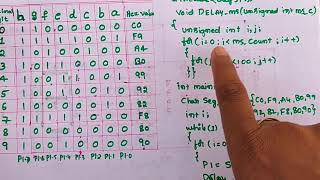 dp g f e d c b a Hex value
1 1 0 0 0 0 0 0 C0
1 1 1 1 1 0 0 1 F9
2 1 0 1 0 0 1 0 0 A4
3 1 0 1 1 0 0 0 0 B0
4 1 0 0 1 1 0 0 1 99
5 1 0 0 1 0 0 1 0 92
6 1 0 0 0 0 0 1 0 82
7 1 1 1 1 1 0 0 0 F8
8 1 0 0 0 0 0 0 0 80
9 1 0 0 1 0 0 0 0 90
P1.7 P1.6 P1.5 P1.4 P1.3 P1.2 P1.1 P1.0
void DELAY_ms(unsigned int ms_C
{ unsigned int i,j;
for (i=0; i< ms_count; i++)
{
for <100; j++)
}}
int main
Char Seg {C0, F9, A4, B0, 99
92, 82, F8, 80, 90}
int i;
while (1)
{ for (i=0
P1 = S
Delay